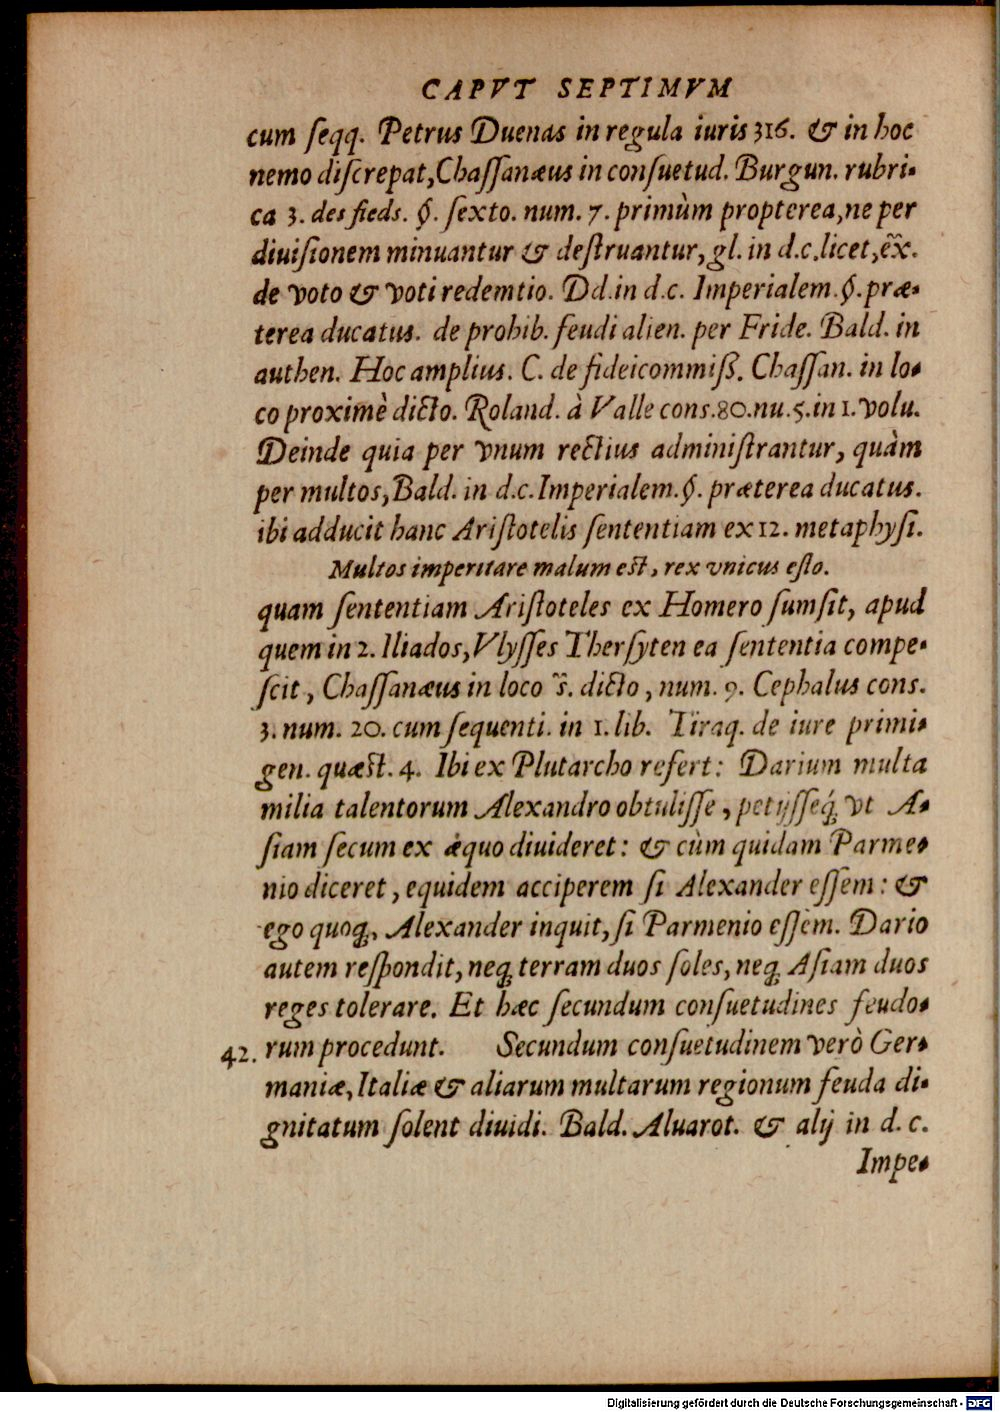 CAPVT SEPTIMVM
cum ſeqq. Petrus Duenas in regula iuris 316. & in hoc
nemo diſcrepat, Chaſſanæus in conſuetud. Burgun. rubri-
ca 3. des fieds. §. ſexto. num. 7. primùm propterea, ne per
diuiſionem minuantur & deſtruantur, gl. in d.c. licet, ex̃.
de voto & voti redemtio. Dd. in d.c. Imperialem. §. præ-
terea ducatus. de prohib. feudi alien. per Fride. Bald. in
authen. Hoc amplius. C. de fideicommiß. Chaſſan. in lo-
co proximè dicto. Roland. à Valle cons. 80. nu. 5. in 1. volu.
Deinde quia per vnum rectius adminiſtrantur, quàm
per multos, Bald. in d.c. Imperialem. §. præterea ducatus.
ibi adducit hanc Ariſtotelis ſententiam ex 12. metaphyſi.
Multos imperitare malum est, rex vnicus eſto.
quam ſententiam Ariſtoteles ex Homero ſumſit, apud
quem in 2. Iliados, Vlyſſes Therſyten ea ſententia compe-
ſcit, Chaſſanæus in loco s̃. dicto, num. 9. Cephalus cons.
3. num. 20. cum ſequenti. in 1. lib. Tiraq. de iure primi-
gen. quæst. 4. Ibi ex Plutarcho refert: Darium multa
milia talentorum Alexandro obtuliſſe, petijſſeq́; vt A-
ſiam ſecum ex æquo diuideret: & cùm quidam Parme-
nio diceret, equidem acciperem ſi Alexander eſſem: &
ego quoq;, Alexander inquit, ſi Parmenio eſſem. Dario
autem reſpondit, neq; terram duos ſoles, neq; Aſiam duos
reges tolerare. Et hæc ſecundum conſuetudines feudo-
42. rum procedunt. Secundum conſuetudinem verò Ger-
maniæ, Italiæ & aliarum multarum regionum feuda di-
gnitatum ſolent diuidi. Bald. Aluarot. & alij in d. c.
Impe-
Digitalisierung gefördert durch die Deutsche Forschungsgemeinschaft - DFG